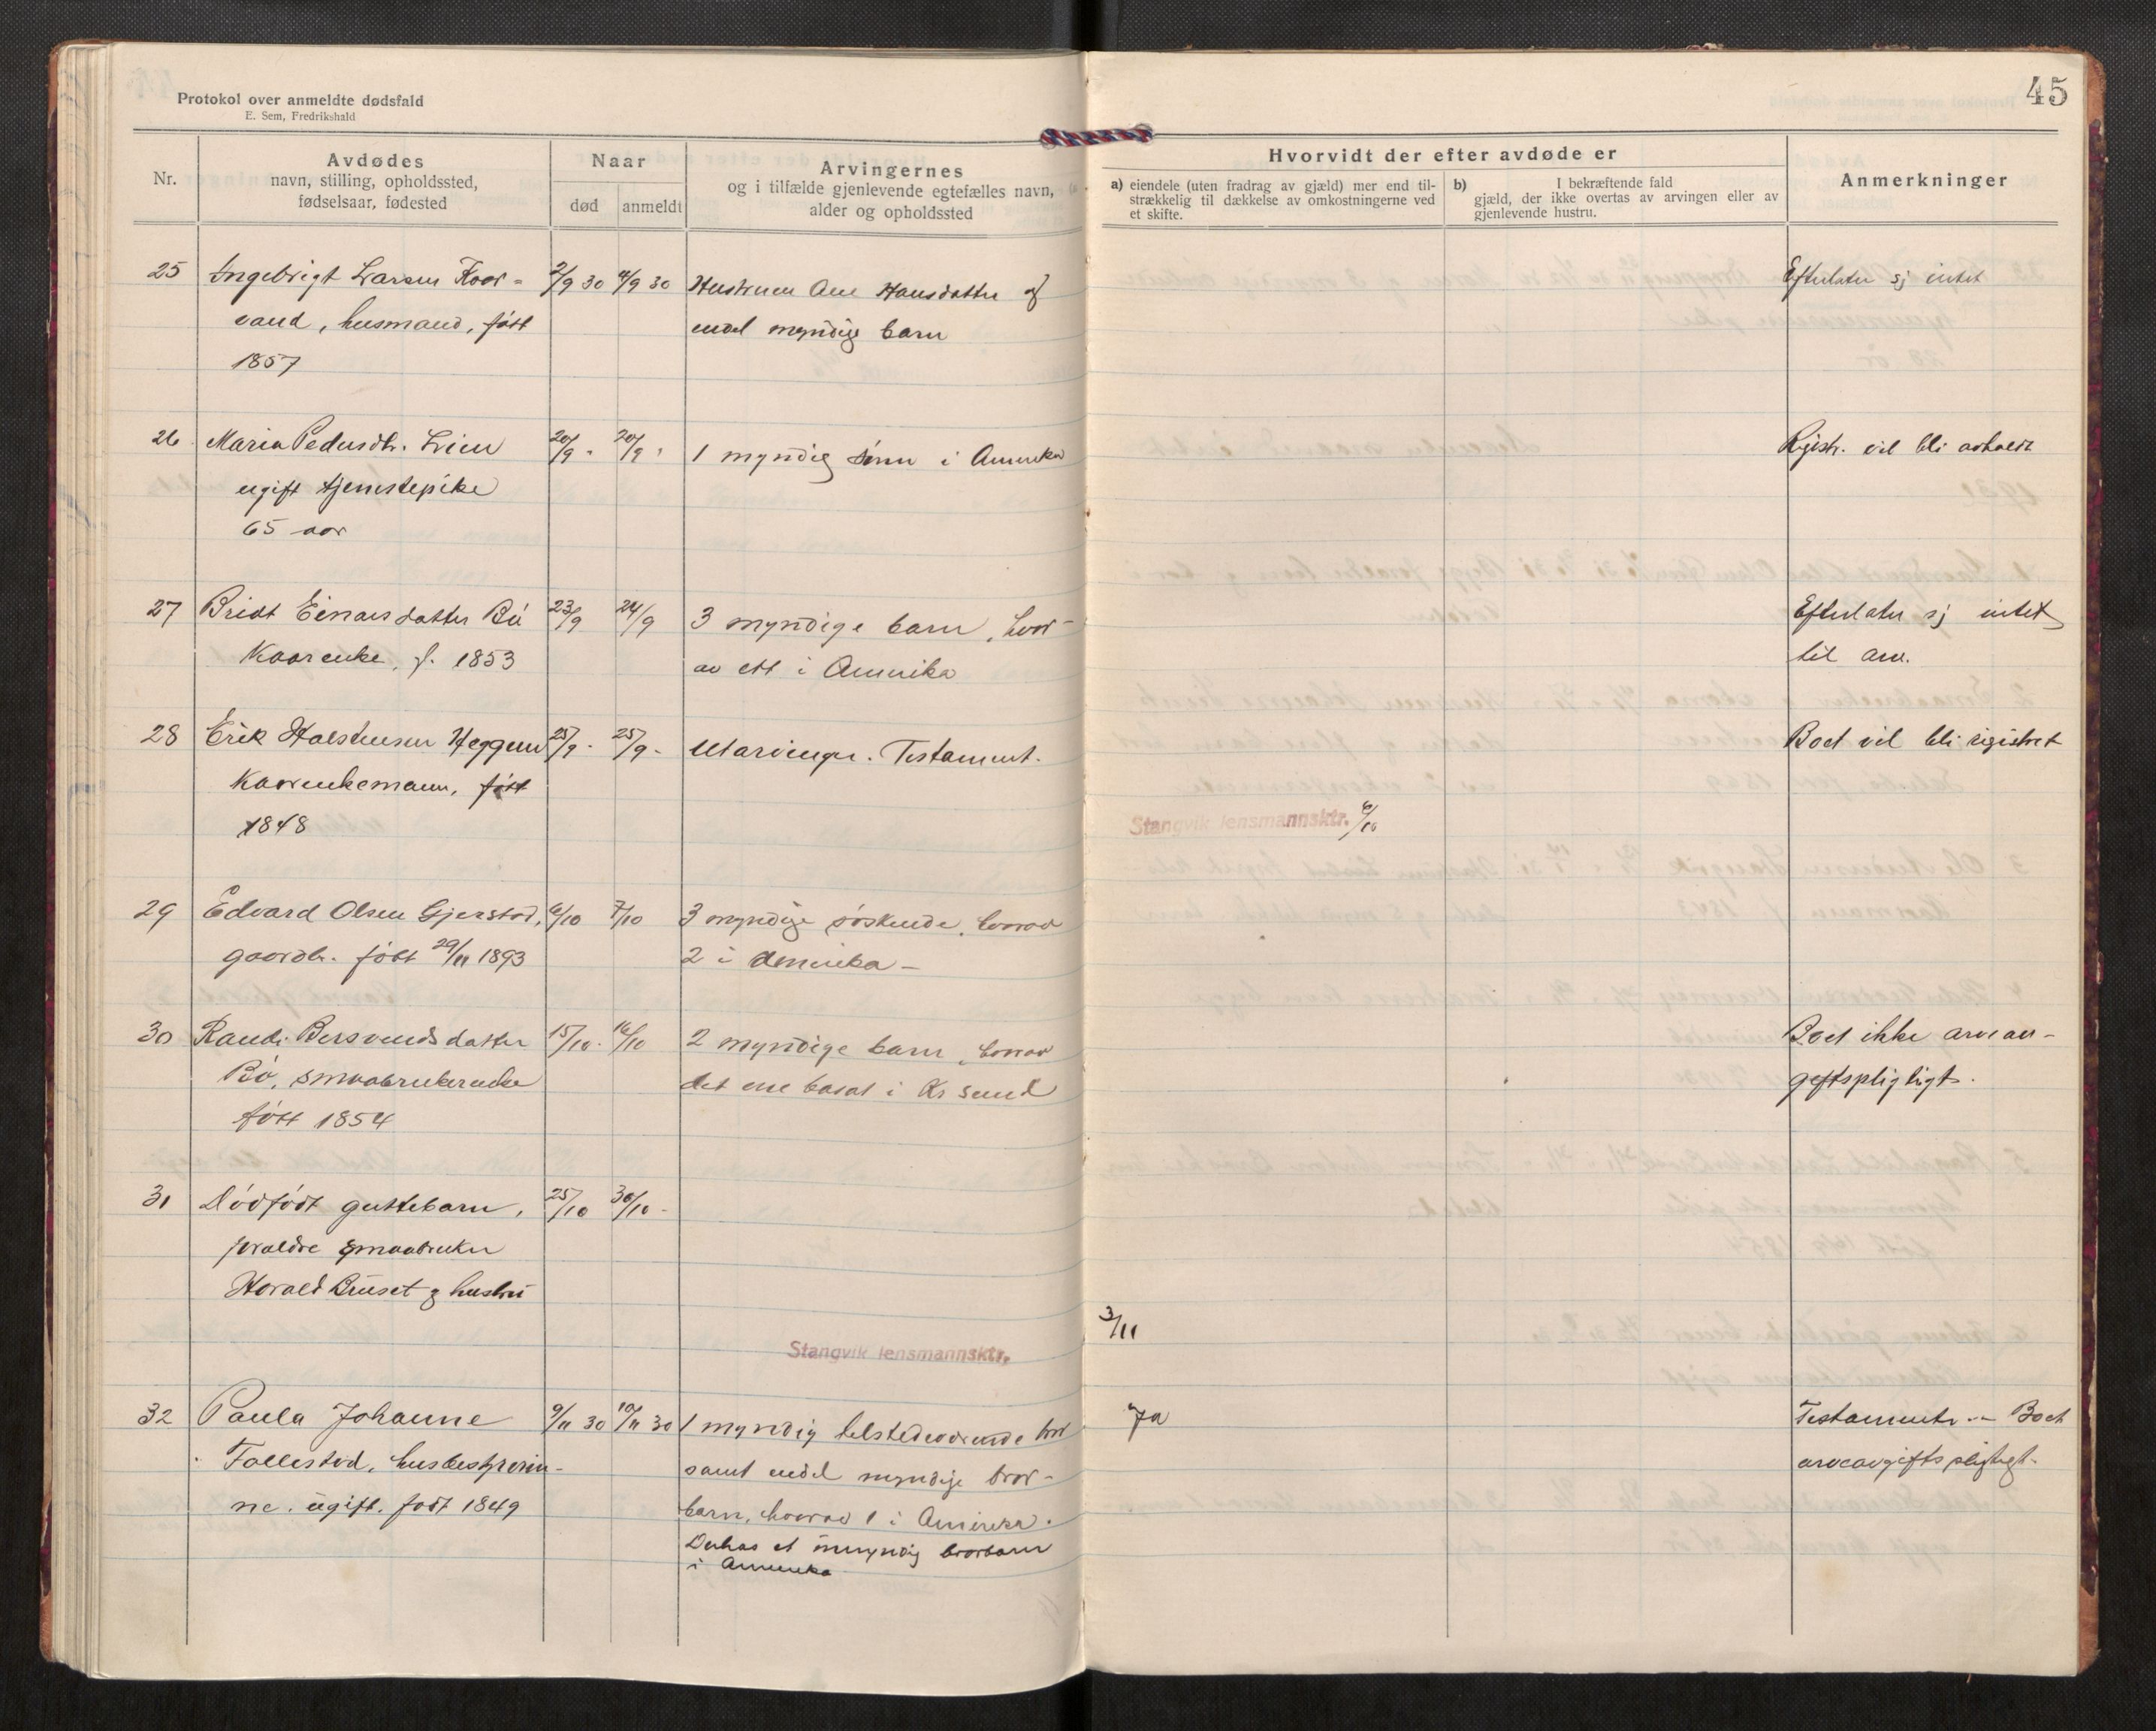 45
Protokol over anmeldte dødsfald
E. Sem, Fredrikshald
Nr.
Avdødes
navn, stilling, opholdssted,
fødselsaar, fødested
Naar
død
anmeldt
Arvingernes
og i tilfælde gjenlevende egtefælles navn,
alder og opholdssted
Hvorvidt der efter avdøde er
a) eiendele (uten fradrag av gjæld) mer end til-
strækkelig til dækkelse av omkostningerne ved
et skifte.
b) I bekræftende fald
gjæld, der ikke overtas av arvingen eller av
gjenlevende hustru.
Anmerkninger
25 Ingebrigt Larsen Koor- 2/9 30 4/9 30 Hustruen Ane Hansdatter og Efterlater sj intet
vand, husmand, født endel myndige barn
1857
26 Maria Pedersdtr. Lien 20/9 " 20/9 " 1 myndig sønn i Amerika Registr. vil bli avholdt
ugift tjenestepike
65 aar
27 Bridt Einarsdatter Bø 23/9 24/9 3 myndige barn, hvor- Efterlater sj intet
Kaarenke, f. 1853 av ett i Amerika til arv.
28 Erik Halstensen Heggem 25/9 - 25/9 - Utarvinger. Testament. Boet vil bli registret
Kaarenkemann, født
1848
Stangvik lensmannsktr. 6/10
29 Edvard Olsen Gjerstad, 6/10 7/10 3 myndige søskende, hvorav
gaardbr. født 29/11 1893 2 i Amerika -
30 Randi Bersvendsdatter 15/10 - 16/10 2 myndige barn, hvorav Boet ikke arveav-
Bø, smaabrukerenke det ene bosat i Kr sund giftspligtigt.
født 1854
31 Dødfødt guttebarn, 25/10 30/10 -
foraldre smaabruker
Harald Bruset & hustru
Stangvik lensmannsktr. 3/11
32 Paula Johanne 9/11 30 10/11 30 1 myndig tilstedeværende bror Ja Testamente -- Boet
Tallestad, husbestyrerin- samt endel myndige bror- arveavgiftspligtigt.
ne. ugift. født 1849 barn, hvorav 1 i Amerika.
Derhos et umyndig brorbarn
i Amerika